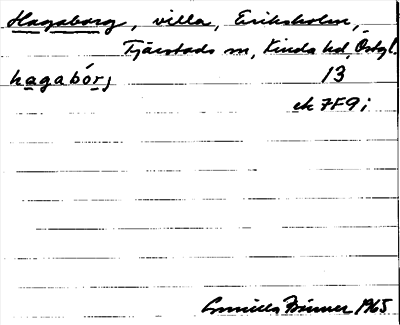 Hagaborg, villa, Eriksholm,
Tjärstads sn, Kinda hd, Östgl.
hagabórj 13
ek 7F9i
Gunilla Brunner 1965